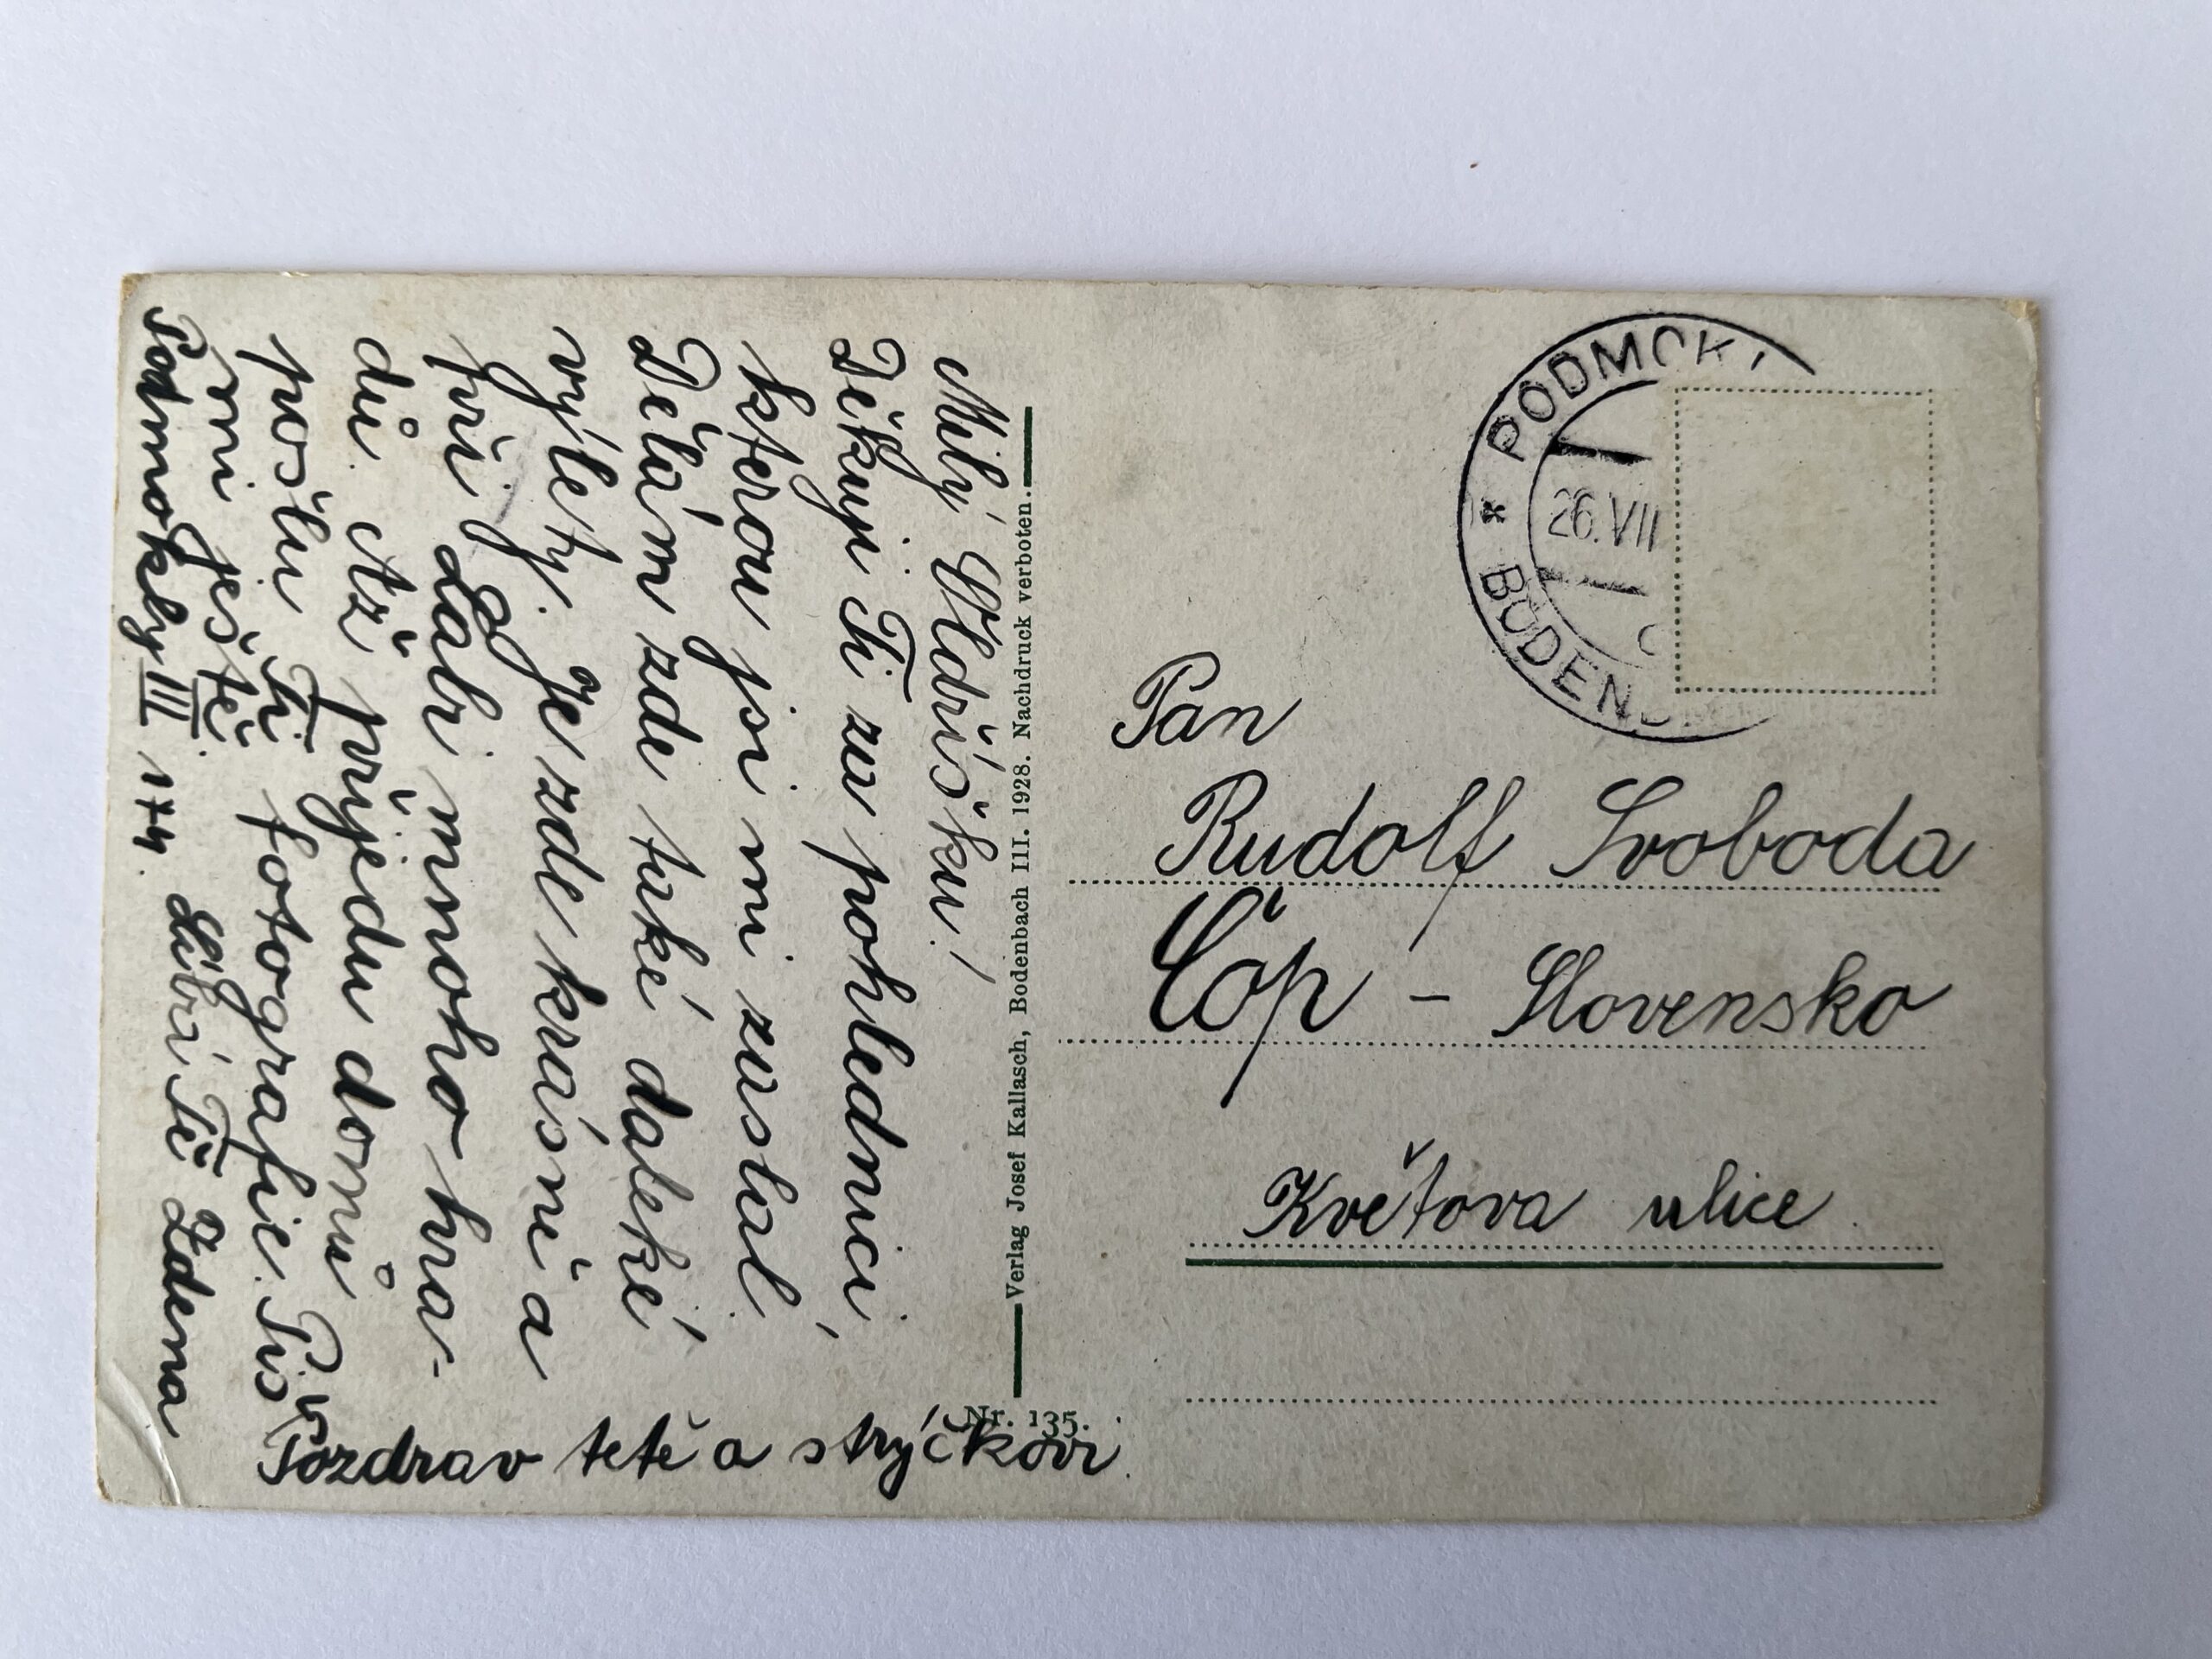 Milý Oldříšku!
Děkuji Ti za pohlednici,
kterou jsi mi zaslal.
Dělám zde také daleké
výlety. Je zde krásně a
při Labi mnoho hra-
dů. Až přijedu domů
pošlu Ti fotografie. Piš
mi ještě.
Podmokly III 174. Líbá Tě Zdena
Pozdrav tetě a strýčkovi.
Verlag Josef Kallasch, Bodenbach III. 1928. Nachdruck verboten.
Nr. 135.
PODMOKL
* BODENB
26.VII
Pan
Rudolf Svoboda
Čóp - Slovensko
Květova ulice.